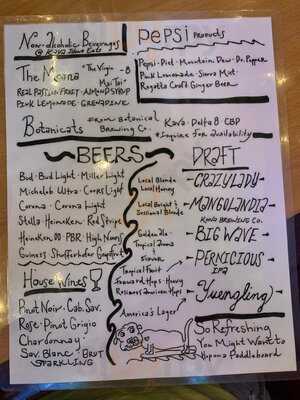 Non-Alcoholic Beverages
@ Kava
The Moana
"The Virgin
Mai Tai"
- 8
Real Passion Fruit · Almond Syrup
Pink Lemonade · Grenadine
Botanicals
From Botanical
Brewing Co.
pepsi PRODUCTS
Pepsi · Diet · Mountain Dew · Dr. Pepper
Pink Lemonade · Sierra Mist ·
Ginger Beer
Kava · Delta 8 CBD
*Inquire for availability
BEERS
Bud · Bud Light · Miller Light
Michelob Ultra · Coors Light
Corona · Corona Light
Stella Heineken Red Stripe
Heineken 00 · PBR · High Noons
Guiness
House Wines
Pinot Noir · Cab. Sav.
Rose · Pinot Grigio
Chardonnay
Sav. Blanc · Brut
Sparkling
DRAFT
Local Blonde
Local Honey
- CRAZY LADY -
Local Bright &
Sessional Blonde
- MANGOLANDIA
Kona Brewing Co.
Golden Ale ·
Tropical
- BIG WAVE -
- PERNICIOUS
IPA
Tropical Fruit
Forward Hops · Heavy
Resinous American Hops
America's Lager
Yuengling
So Refreshing
You Might Want to
Hip on a Paddleboard